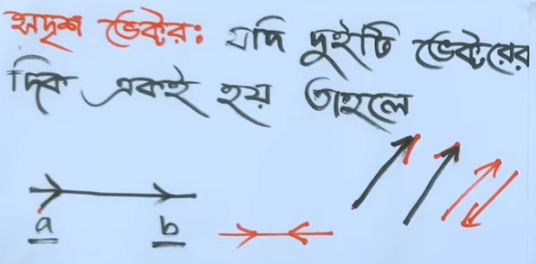 সদৃশ ভেক্টর: যদি দুইটি ভেক্টরের
দিক একই হয় তাহলে
a b